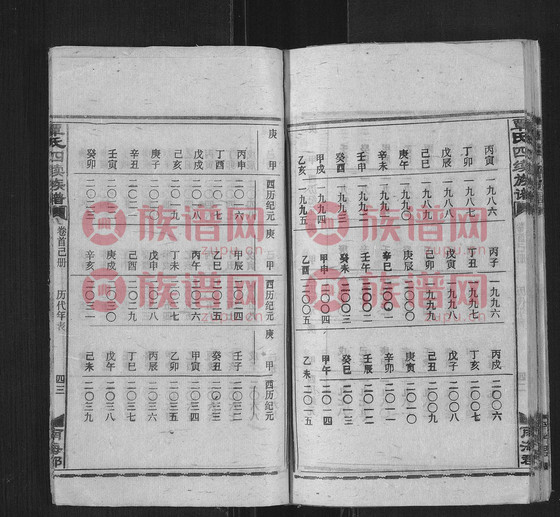 覃氏四续族谱
丙寅 一九八六
丁卯 一九八七
戊辰 一九八八
己巳 一九八九
庚午 一九九〇
辛未 一九九一
壬申 一九九二
癸酉 一九九三
甲戌 一九九四
乙亥 一九九五
丙子 一九九六
丁丑 一九九七
戊寅 一九九八
己卯 一九九九
庚辰 二〇〇〇
辛巳 二〇〇一
壬午 二〇〇二
癸未 二〇〇三
甲申 二〇〇四
乙酉 二〇〇五
丙戌 二〇〇六
丁亥 二〇〇七
戊子 二〇〇八
己丑 二〇〇九
庚寅 二〇一〇
辛卯 二〇一一
壬辰 二〇一二
癸巳 二〇一三
甲午 二〇一四
乙未 二〇一五
庚甲 西历纪元
丙申 二〇一六
丁酉 二〇一七
戊戌 二〇一八
己亥 二〇一九
庚子 二〇二〇
辛丑 二〇二一
壬寅 二〇二二
癸卯 二〇二三
庚甲 西历纪元
甲辰 二〇二四
乙巳 二〇二五
丙午 二〇二六
丁未 二〇二七
戊申 二〇二八
己酉 二〇二九
庚戌 二〇三〇
辛亥 二〇三一
庚甲 西历纪元
壬子 二〇三二
癸丑 二〇三三
甲寅 二〇三四
乙卯 二〇三五
丙辰 二〇三六
丁巳 二〇三七
戊午 二〇三八
己未 二〇三九
覃氏四续族谱
卷首己册
历代年表
四三
族谱网
zupu.cn
族谱网
zupu.cn